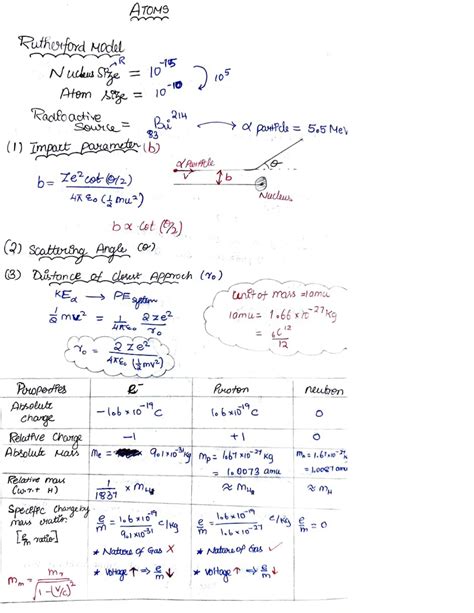 ATOMS
Rutherford Model
Nucleus Size = 10^-15
R
10^5
Atom size = 10^-10
Radioactive Source = 83 Bi 214 → α particle = 5.5 MeV
(1) Impact parameter (b)
α Particle
θ
V
b
Nucleus
b = Ze² cot (θ/2) / 4πε₀ (½ mu²)
b ∝ cot (θ/2)
(2) Scattering Angle (θ)
(3) Distance of closest Approch (r₀)
KEα → PE system
½ mv² = 1/4πε₀ 2ze²/r₀
r₀ = 2ze² / 4πε₀ (½ mv²)
Unit of mass = 1amu
1amu = 1.66 × 10^-27 kg
= 6C^12 / 12
Properties e⁻ Proton neutron
Absolute charge -1.6 × 10^-19 C 1.6 × 10^-19 C 0
Relative Charge -1 +1 0
Absolute Mass me = 9.1 × 10^-31 kg mp = 1.67 × 10^-27 kg
= 1.0073 amu
Relative mass (w.r.t H) 1/1837 × mH ≈ mH ≈ mH
Specific charge by mass ratio [e/m ratio] e/m = 1.6 × 10^-19 / 9.1 × 10^-31 C/kg e/m = 1.6 × 10^-19 / 1.67 × 10^-27 C/kg e/m = 0
* Nature of Gas ✗ * Nature of Gas ✓
* Voltage ↑ ⇒ e/m ↓ * Voltage ↑ ⇒ e/m ↓